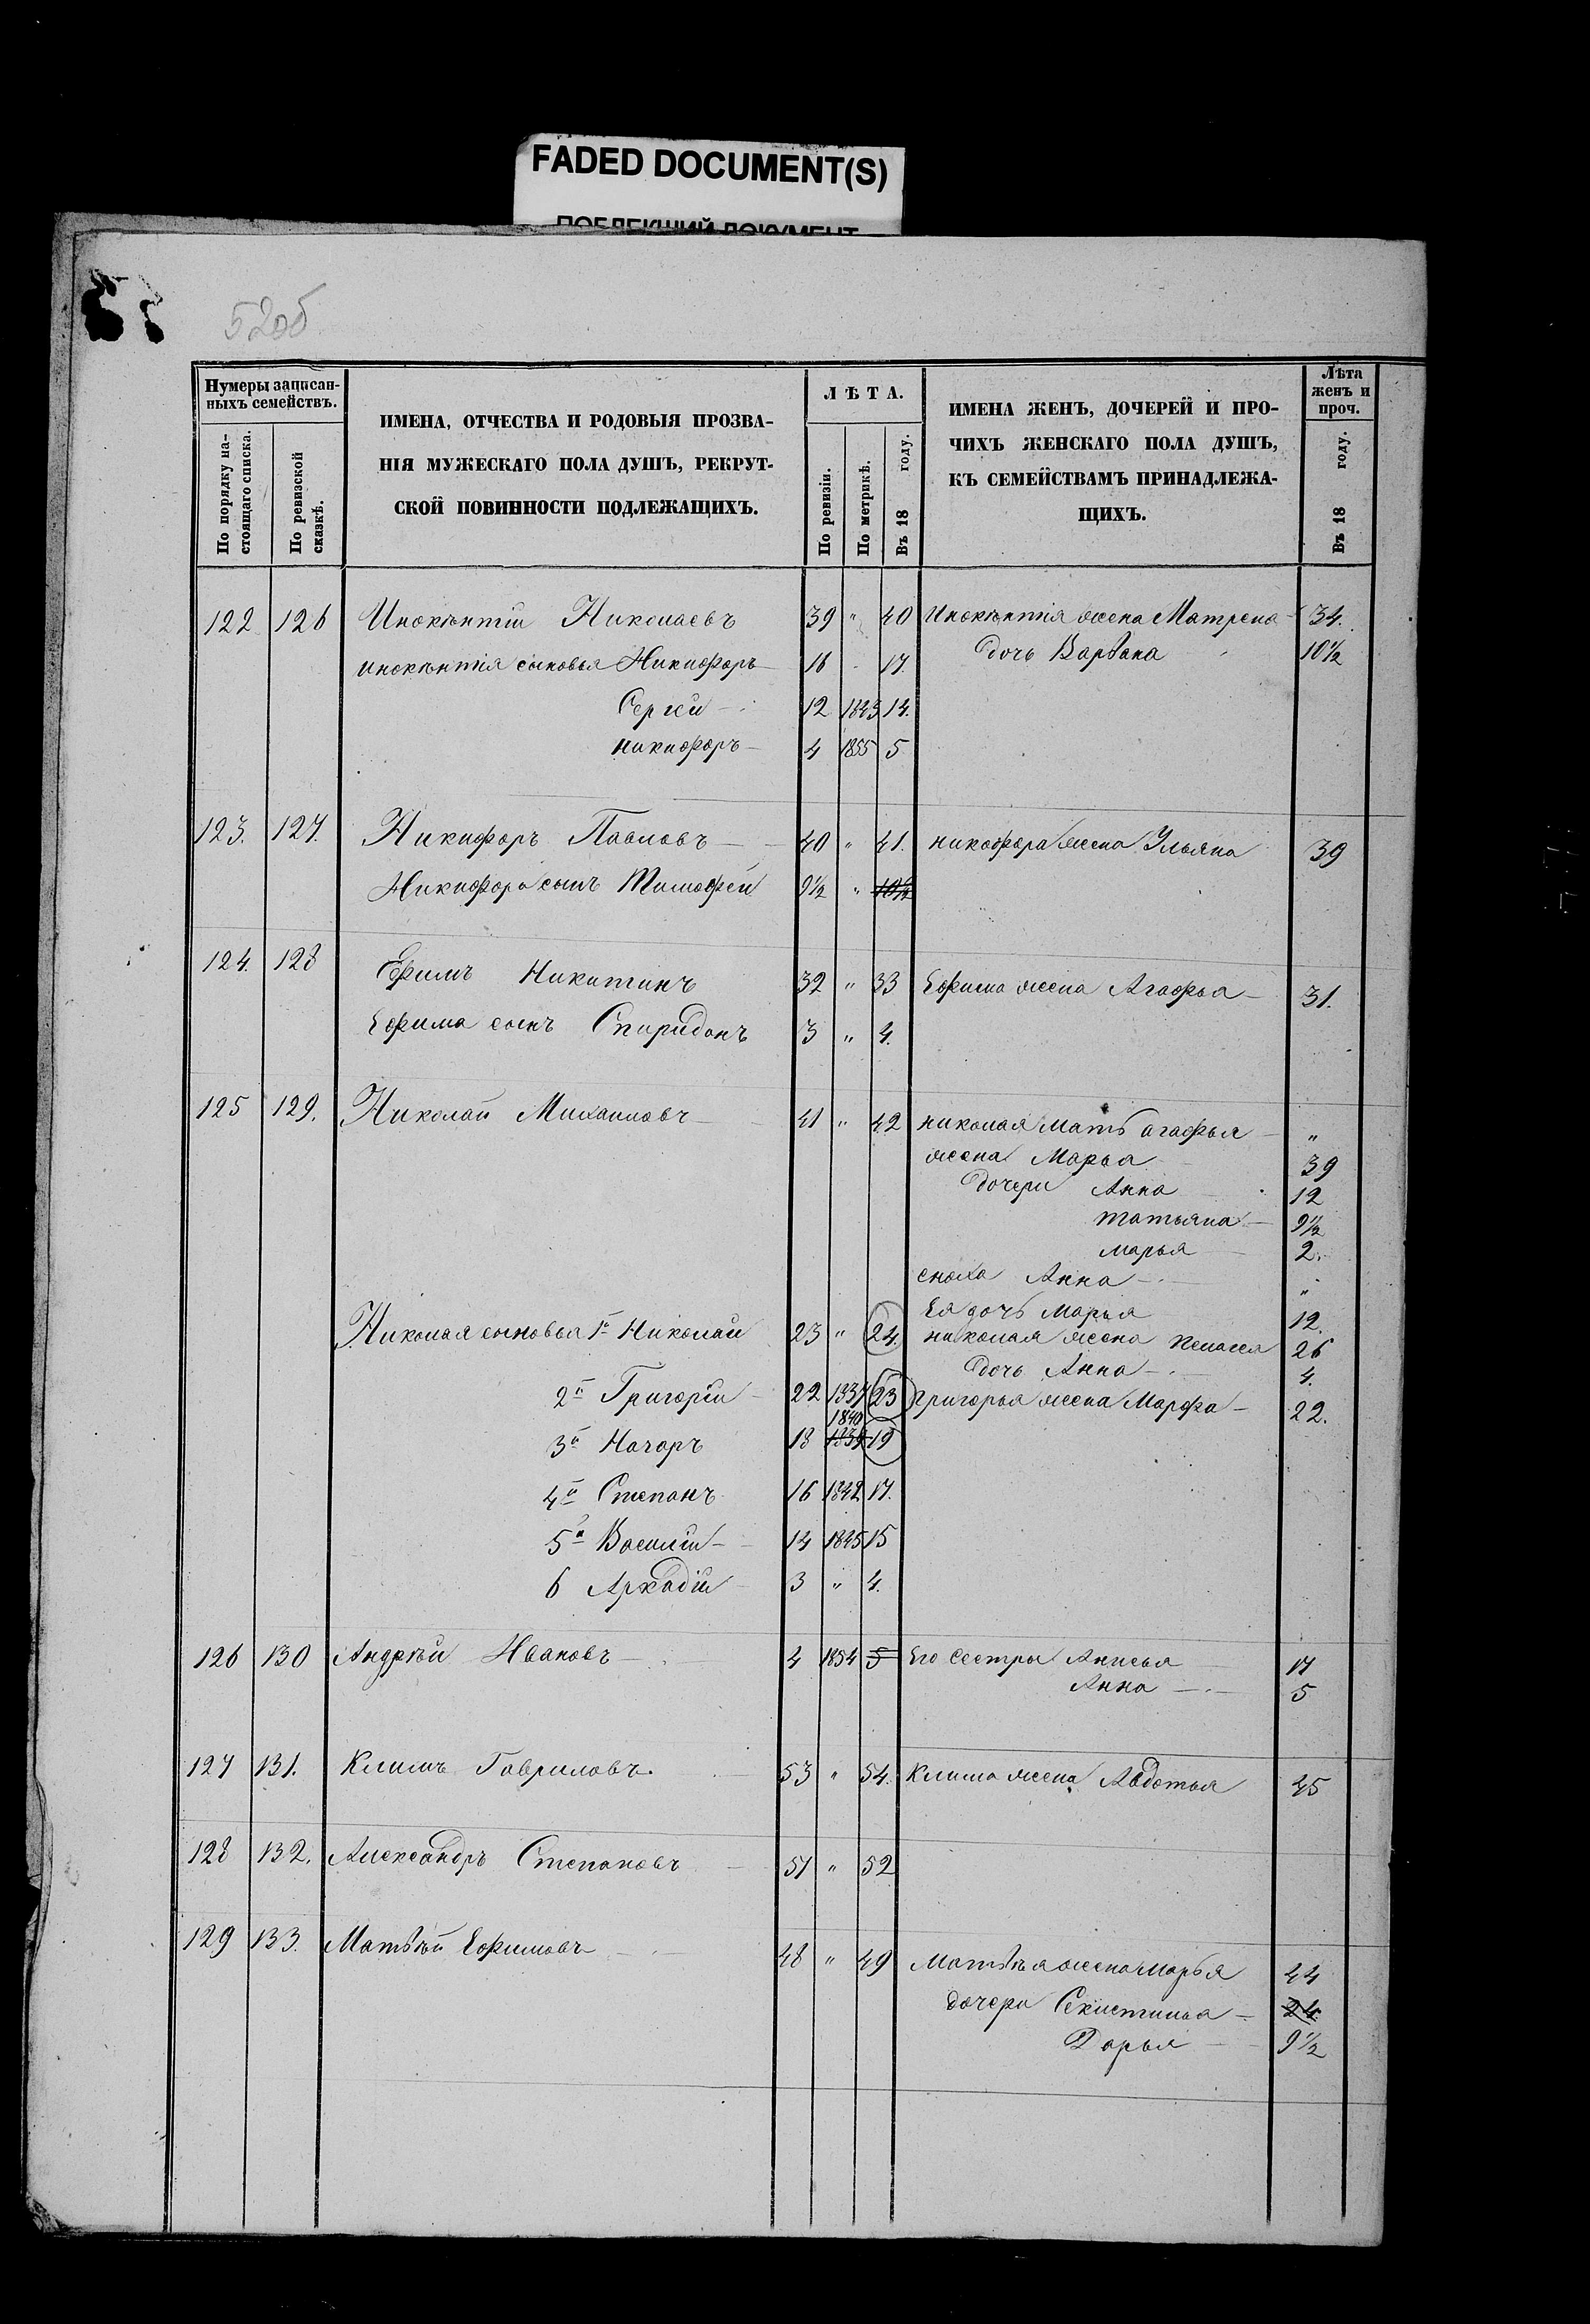 FADED DOCUMENT(S)
ПОБЛЕКШИЙ ДОКУМЕНТ
52об
Нумеры записан-
ныхъ семействъ.
По порядку на-
стоящаго списка.
По ревизской
сказкѣ.
ИМЕНА, ОТЧЕСТВА И РОДОВЫЯ ПРОЗВА-
НІЯ МУЖЕСКАГО ПОЛА ДУШЪ, РЕКРУТ-
СКОЙ ПОВИННОСТИ ПОДЛЕЖАЩИХЪ.
ЛѢТА.
По ревизіи.
По метрикѣ.
Въ 18 году.
ИМЕНА ЖЕНЪ, ДОЧЕРЕЙ И ПРО-
ЧИХЪ ЖЕНСКАГО ПОЛА ДУШЪ,
КЪ СЕМЕЙСТВАМЪ ПРИНАДЛЕЖА-
ЩИХЪ.
Лѣта
женъ и
проч.
Въ 18 году.
122 126 Инокѣнтій Николаевъ 39 " 40 Инокѣнтія жена Матрена 34.
инокѣнтія сыновья Никифоръ 16 17. дочь Варвана 10½
Сергѣй 12 1845 14.
никифоръ 4 1855 5
123. 127. Никифоръ Павловъ 40 " 41. никофора жена Ульяна 39
Никифора сынъ Тимофей 9½ " 10½
124. 128 Ефимъ Никитинъ 32 " 33 Ефима жена Агафья 31.
Ефима сынъ Спиридонъ 3 " 4.
125 129. Николай Михаиловъ 41 " 42 николая мать агафья "
жена Марья 39
дочери Анна 12
татьяна 9½
марья 2.
сноха Анна "
Ея дочь Марья 12.
Николая сыновья 1й Николай 23 " 24. николая жена Пелагея 26
дочь Анна 4.
2й Григорій 22 1837 23 Григорья жена Марфа 22.
1840
3й Назаръ 18 1839 19
4й Степанъ 16 1842 17.
5й Василій 14 1845 15
6 Аркадій 3 " 4.
126 130 Андрѣй Ивановъ 4 1854 5 Его сестры Анисья 17
Анна 5
127 131. Климъ Гавриловъ. 53 " 54. Клима жена Авдотья 45
128 132. Александръ Степановъ 51 " 52
129 133. Матвѣй Ефимовъ 48 " 49 Матвѣя жена марья 44
дочери 24
Дарья 9½